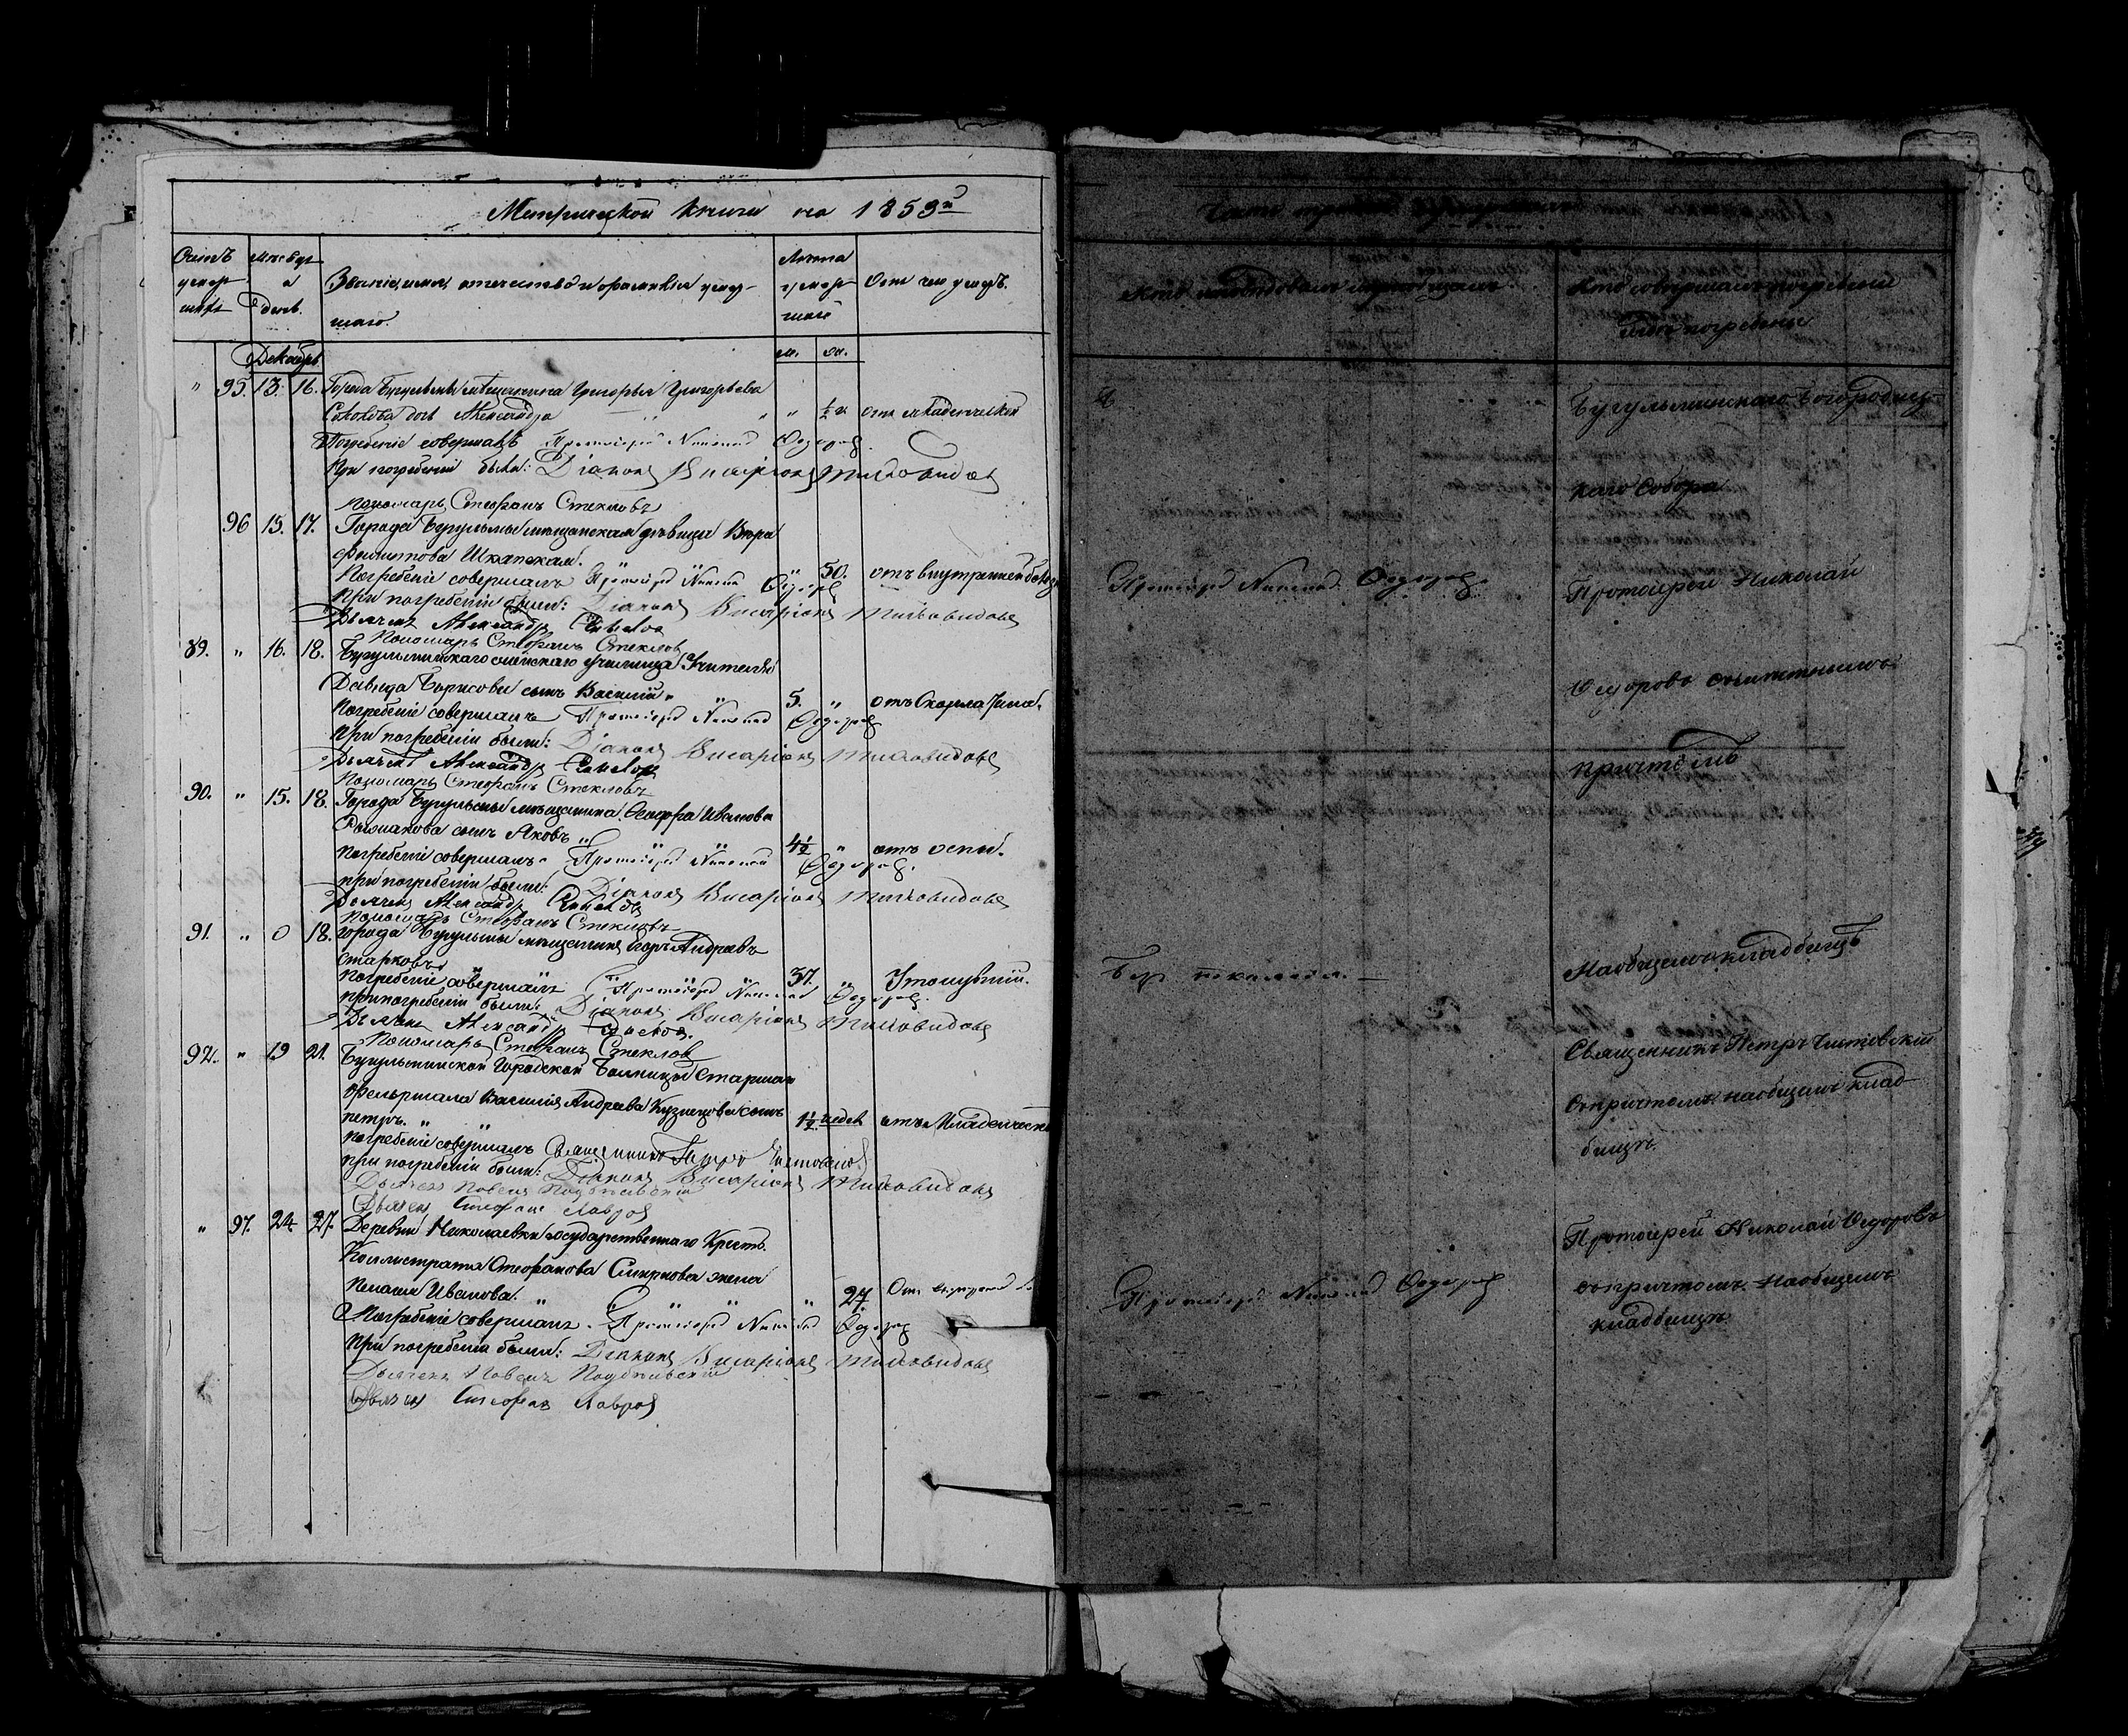 Метрической книги на 1859й
Счетъ умер-шихъ
Мѣсяцъ и день.
Званіе, имя, отечество и фамилія умер-
шаго.
Лѣта умер-шаго
Отъ чего умеръ.
Декабрь
м. ж.
" 95. 13. 16. Города Бугульмы мѣщанина Григорья Григорьева
Соколова дочь Александра " " ½ отъ младенческой
Погребеніе совершалъ Протоіерей Николай Федоровъ.
При погребеніи были: Діаконъ Висаріонъ Миловидовъ
Пономарь Стефанъ Стекловъ
96 15. 17. Города Бугульмы мѣщанская дѣвица Вѣра
Филиппова " 50. отъ внутренней
Погребеніе совершалъ Протоіерей Николай Федоровъ
При погребеніи были: Діаконъ Висаріонъ Миловидовъ
Дьячекъ Александръ
Пономарь Стефанъ Стекловъ
89. " 16. 18. Бугульминскаго училища Учителя
Давида Борисова сынъ Василій " 5. " отъ Скарлатины.
Погребеніе совершалъ Протоіерей Николай Федоровъ
При погребеніи были: Діаконъ Висаріонъ Миловидовъ
Дьячекъ Александръ
Пономарь Стефанъ Стекловъ
90. " 15. 18. Города Бугульмы мѣщанина Ѳеодора Иванова
сынъ Яковъ " 4½ " отъ оспы.
Погребеніе совершалъ Протоіерей Николай Федоровъ.
При погребеніи были: Діаконъ Висаріонъ Миловидовъ
Дьячекъ Александръ
Пономарь Стефанъ Стекловъ
91. " 0 18. города Бугульмы мѣщанинъ Егоръ Андреевъ
Старковъ 37. "
Погребеніе совершалъ Протоіерей Николай Федоровъ.
При погребеніи были: Діаконъ Висаріонъ Миловидовъ
Дьячекъ Александръ
Пономарь Стефанъ Стекловъ
92. " 19 21. Бугульминской Городской Больницы Старшаго
фельдшала Василія Андреева Кузнецова сынъ
петръ. " 1½ недел отъ Младенческ
погребеніе совершалъ Священникъ Петръ
При погребеніи были: Діаконъ Висаріонъ Миловидовъ
Дьячекъ Павелъ
Дьячекъ Стефанъ Лавровъ
" 97. 24. 27. Деревни Николаевки государственнаго Крестъ.
Каллистрата Стефанова Смирнова жена
Пелагія Иванова. " 27.
Погребеніе совершалъ Протоіерей Николай Федоровъ
При погребеніи были: Діаконъ Висаріонъ Миловидовъ
Дьячекъ Павелъ
Дьячекъ Стефанъ Лавровъ
Кто исповѣдовалъ и пріобщалъ.
Кто совершалъ погребеніе
и гдѣ погребены
Бугульминскаго Богородиц-
каго Собора
Протоіерей Николай Федоровъ.
Протоіерей Николай
Федоровъ съ
причтомъ
На общемъ кладбищѣ
Безъ покаянія.
Священникъ Петръ
Съ причтомъ на общемъ клад-
бищѣ.
Протоіерей Николай Федоровъ
Протоіерей Николай Федоровъ
съ причтомъ. На общемъ
кладбищѣ.